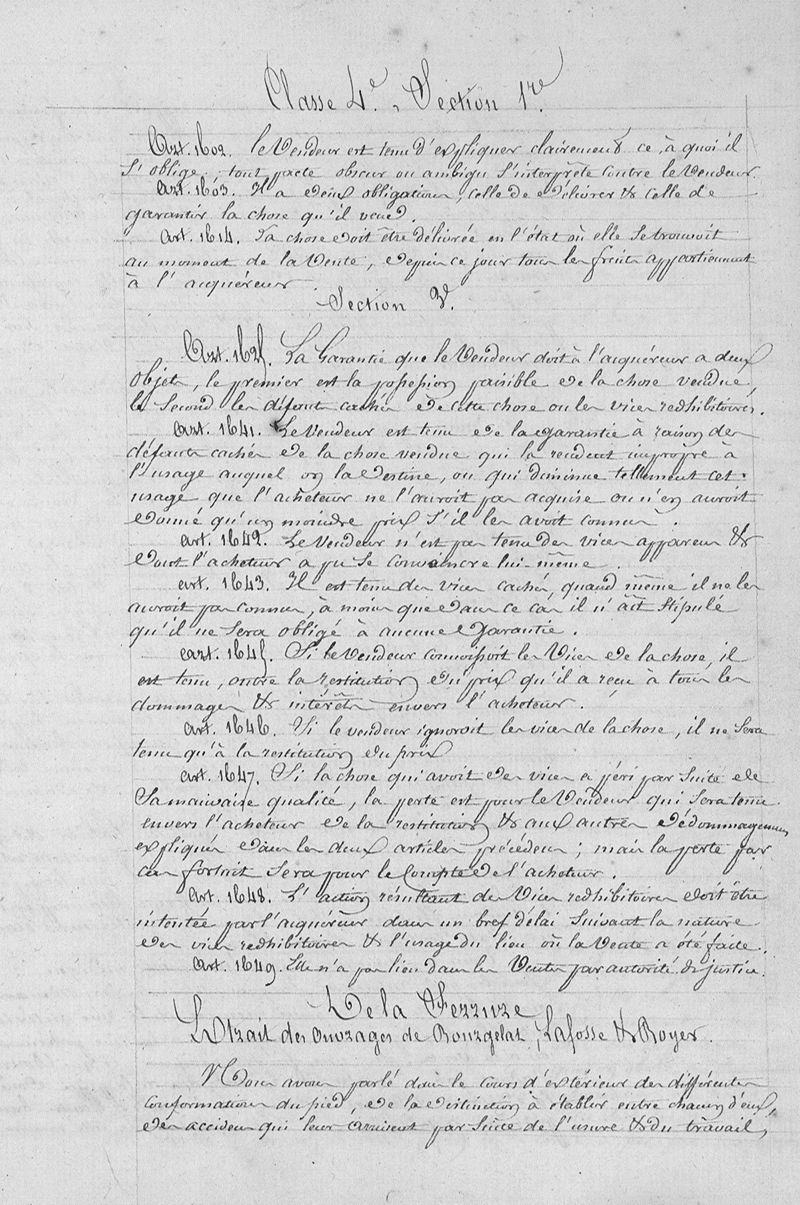 Classe 4e. Section 1re.
Art. 1602. le Vendeur est tenu d'expliquer clairement ce, à quoi il
S'oblige, tout pacte obscur ou ambigu S'interprète contre le Vendeur.
art. 1603. Il a deux obligations, celle de délivrer & celle de
garantir la chose qu'il vend.
art. 1614. La chose doit être délivrée en l'état où elle Se trouvoit
au moment de la Vente, depuis ce jour tous les fruits appartiennent
à l'acquéreur
Section 3e.
Art. 1625. La Garantie que le Vendeur doit à l'acquéreur a deux
objets, le premier est la possession paisible de la chose vendue,
le Second les défauts cachés de cette chose ou les vices redhibitoires.
art. 1641. Le Vendeur est tenu de la garantie à raison des
défauts cachés de la chose vendue qui la rendent impropre à
l'usage auquel on la destine, ou qui diminue tellement cet
usage que l'acheteur ne l'auroit pas acquise ou n'en auroit
donné qu'un moindre prix S'il les avoit connus.
art. 1642. Le Vendeur n'est pas tenu des vices apparens &
dont l'acheteur a pu Se convaincre lui-même.
art. 1643. Il est tenu des vices cachés, quand même il ne les
auroit pas connus, à moins que dans ce cas il n'ait Stipulé
qu'il ne Sera obligé à aucune Garantie.
art. 1645. Si le Vendeur connoissoit les Vices de la chose, il
est tenu, outre la restitution du prix qu'il a reçu à tous les
dommages & intérêts envers l'acheteur.
art. 1646. Si le vendeur ignoroit les vices de la chose, il ne Sera
tenu qu'à la restitution du prix
art. 1647. Si la chose qui avoit des vices a péri par Suite de
Sa mauvaise qualité, la perte est pour le Vendeur qui Sera tenu
envers l'acheteur de la restitution & aux autres dédommagemens
expliqués dans les deux articles précédens; mais la perte par
cas fortuit Sera pour le Compte de l'acheteur.
art. 1648. L'action résultant des Vices redhibitoires doit être
intentée par l'acquéreur dans un bref délai Suivant la nature
des vices redhibitoires & l'usage du lieu où la Vente a été faite.
art. 1649. Elle n'a pas lieu dans les Ventes par autorité de justice.
De la Ferrure
Extrait des Ouvrages de Bourgelat, Lafosse & Royer.
Nous avons parlé dans le cours d'extérieur des différentes
conformations du pied, de la distinction à établir entre chacun d'eux,
des accidens qui leur arrivent par Suite de l'usure & du travail,